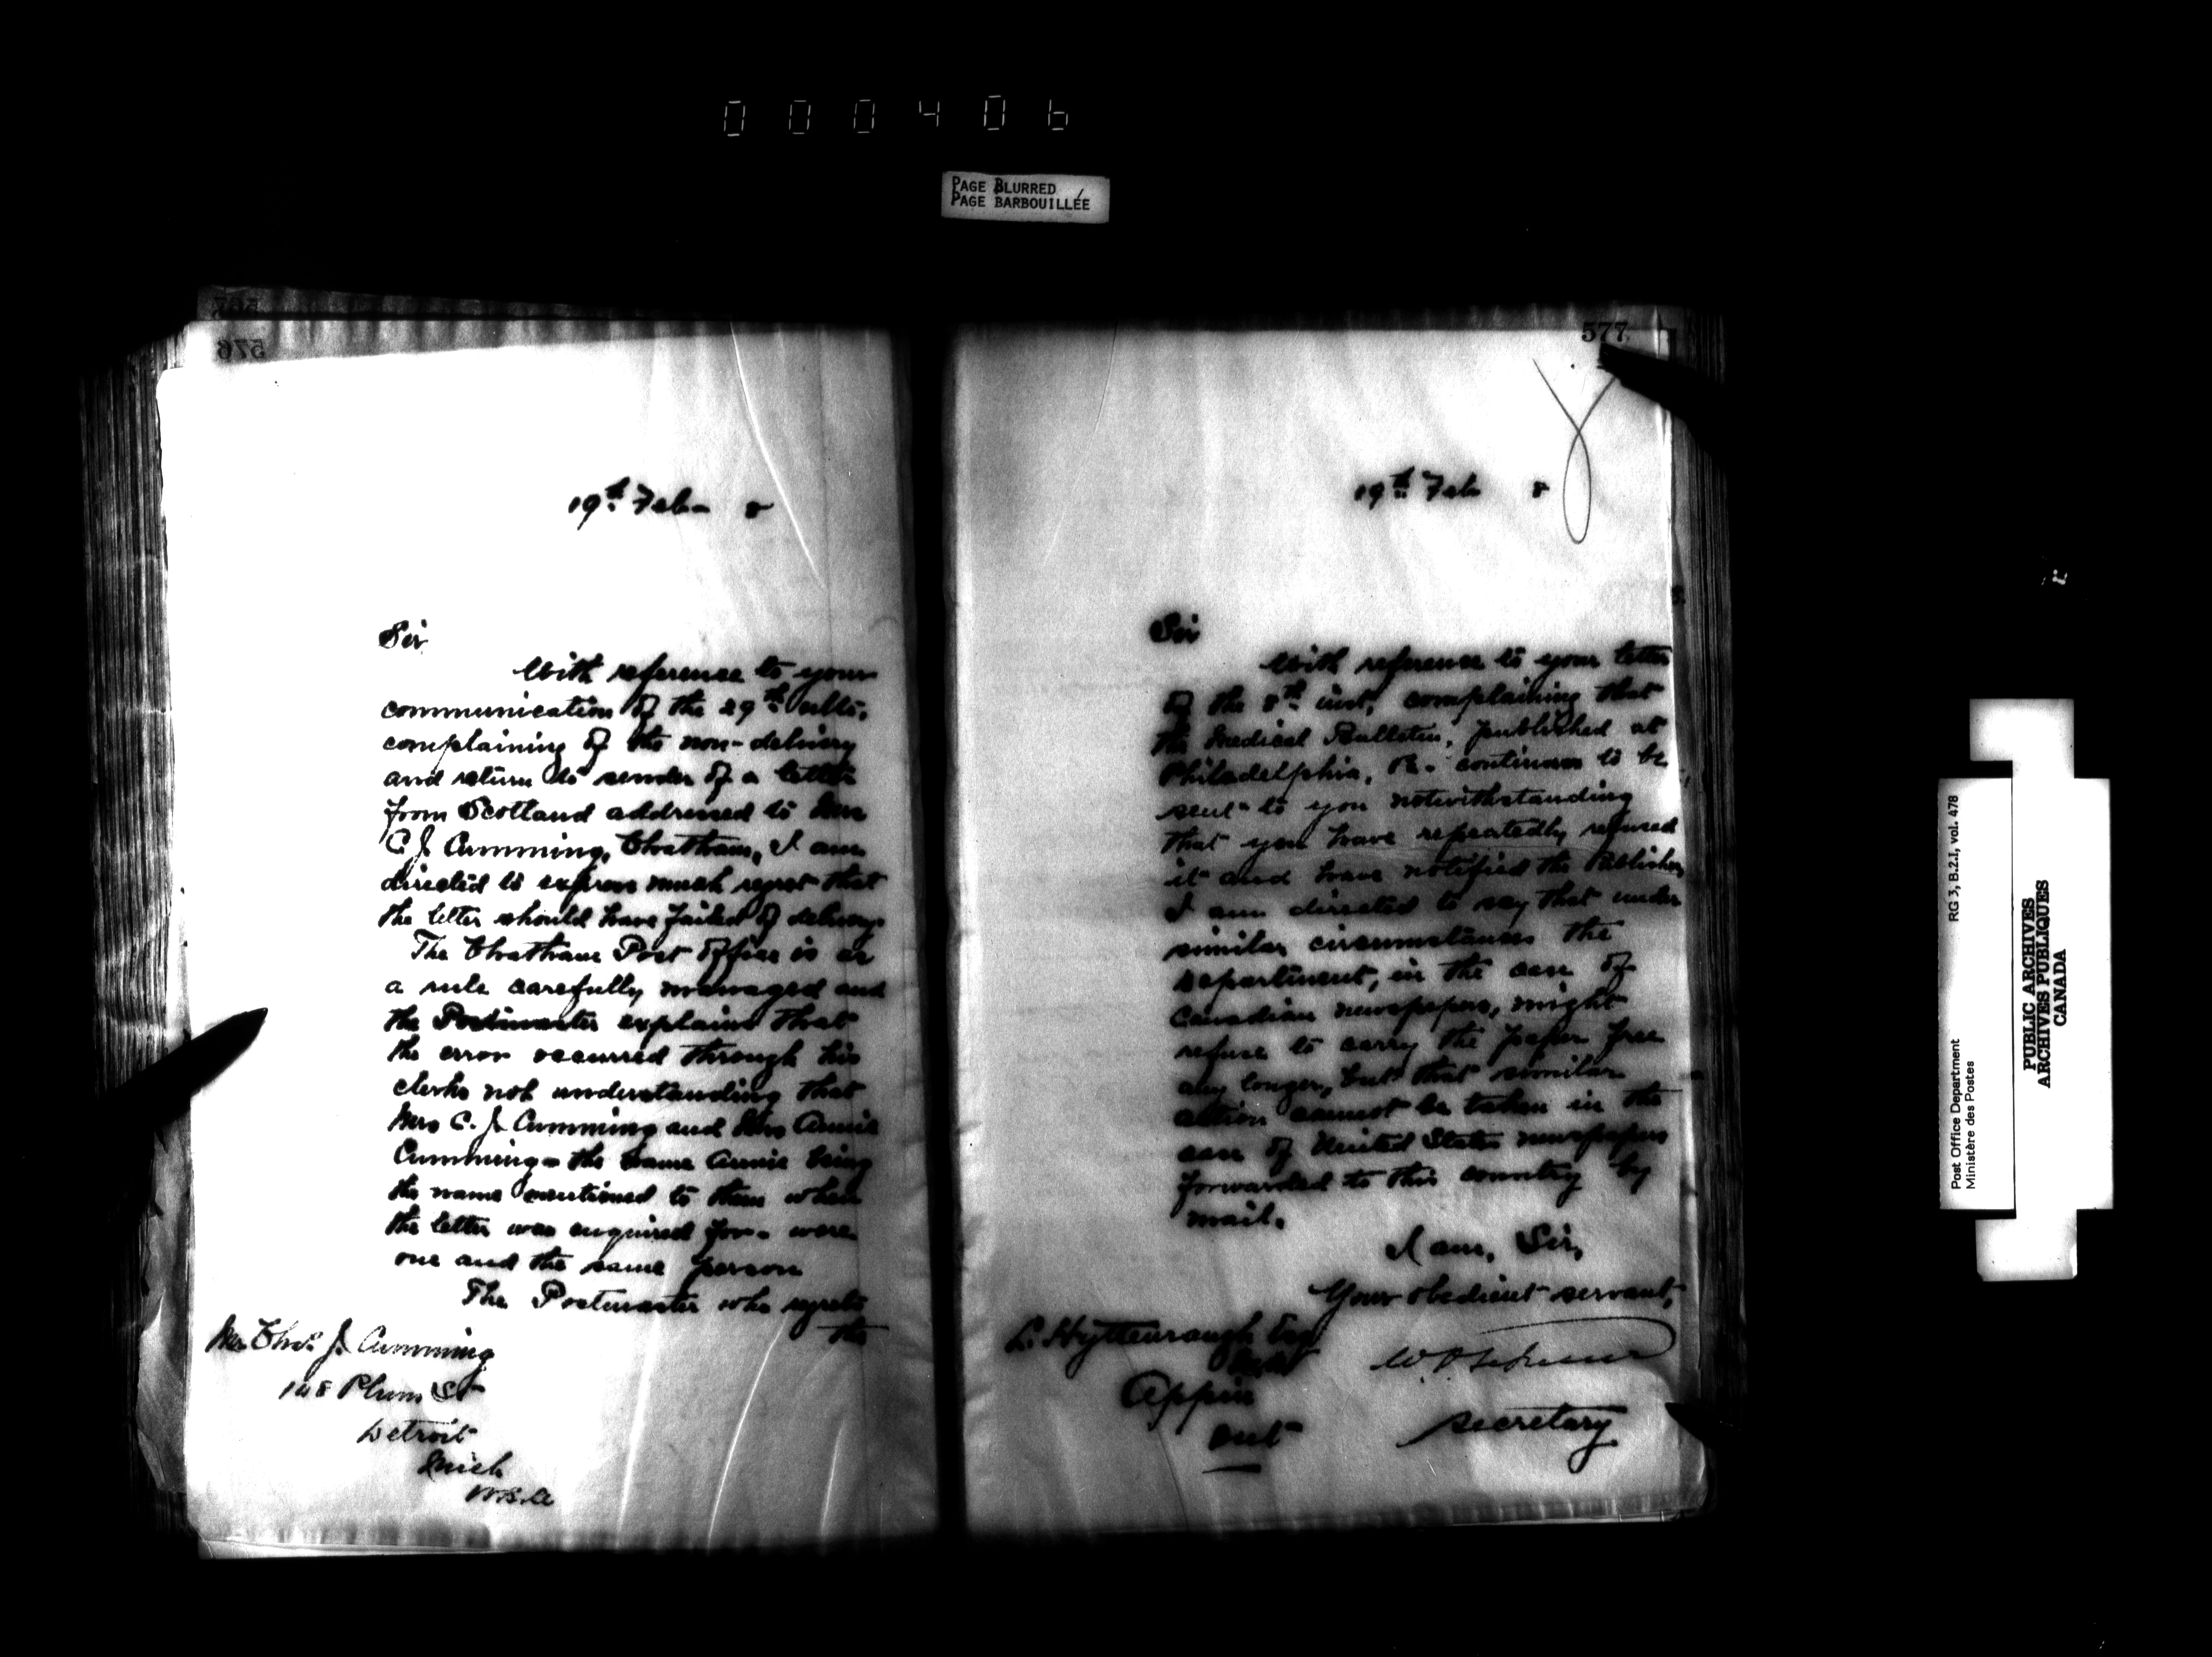 000406
PAGE BLURRED
PAGE BARBOUILLÉE
576
19th Feb- 8
Sir
With reference to your
communication of the 29th ulto.
complaining of the non-delivery
and return to sender of a letter
from Scotland addressed to Mrs
C. J. Cumming, Chatham, I am
directed to express much regret that
the letter should have failed of delivery.
The Chatham Post Office is as
a rule carefully managed and
the Postmaster explains that
the error occurred through his
clerks not understanding that
Mrs C. J. Cumming and Mrs Annie
Cumming - the name Annie being
the name mentioned to them when
the letter was enquired for - were
one and the same person
The Postmaster who regrets
the
Mr Chs. J. Cumming
148 Plum St
Detroit
Mich
U.S.A
577
19th Feb 8
Sir
With reference to your letter
of the 8th inst, complaining that
the Medical Bulletin, published at
Philadelphia, Pa. continues to be
sent to you notwithstanding
that you have repeatedly refused
it and have notified the Publisher,
I am directed to say that under
similar circumstances the
Department, in the case of
Canadian newspapers, might
refuse to carry the paper free
any longer, but that similar
action cannot be taken in the
case of United States newspapers
forwarded to this country by
mail.
I am, Sir,
Your obedient servant,
Secretary
L. Esq
Appin
Ont
Post Office Department RG 3, B.2.1, vol. 478
Ministère des Postes
PUBLIC ARCHIVES
ARCHIVES PUBLIQUES
CANADA